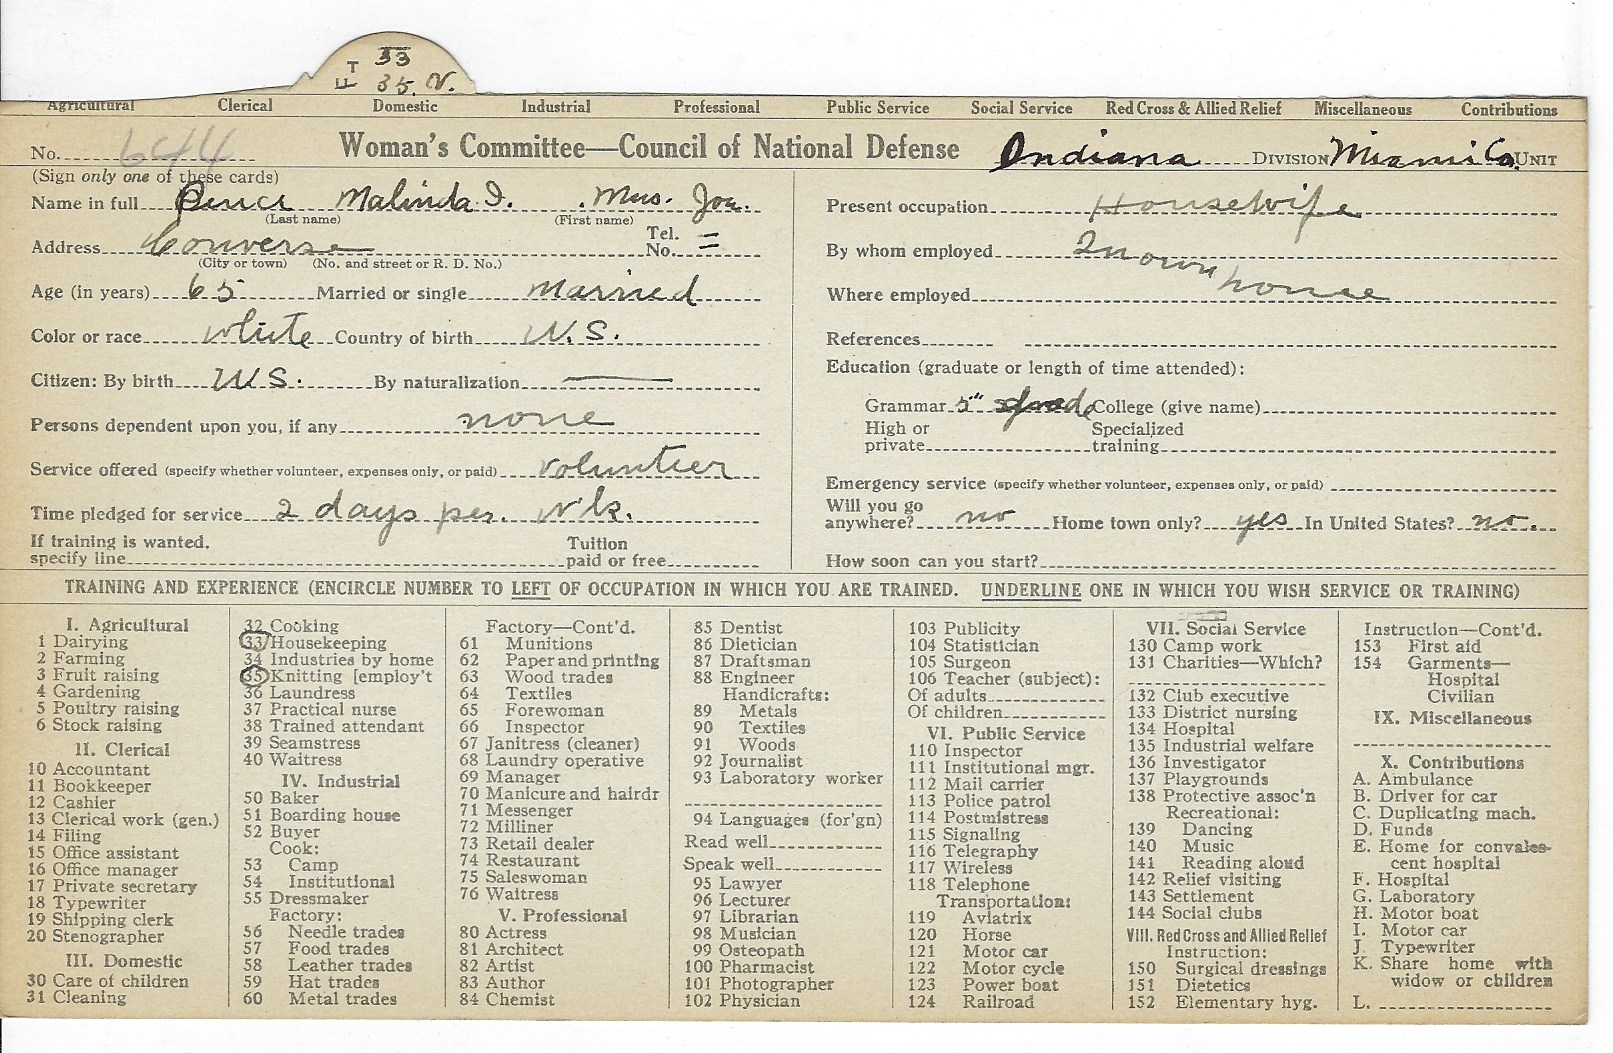 33
FT 35. V.
Agricultural Clerical Domestic Industrial Professional Public Service Social Service Red Cross & Allied Relief Miscellaneous Contributions
No. 644 Woman's Committee—Council of National Defense Indiana DIVISION Miami Co. UNIT
(Sign only one of these cards)
Name in full Malinda I. Mrs. Joe.
(Last name) (First name)
Address Converse Tel. No. =
(City or town) (No. and street or R. D. No.)
Age (in years) 65 Married or single married
Color or race white Country of birth U.S.
Citizen: By birth U.S. By naturalization —
Persons dependent upon you, if any none
Service offered (specify whether volunteer, expenses only, or paid) volunteer
Time pledged for service 2 days per. Wk.
If training is wanted, specify line Tuition paid or free
Present occupation Housewife
By whom employed In own house
Where employed
References
Education (graduate or length of time attended):
Grammar 5" grade College (give name)
High or private Specialized training
Emergency service (specify whether volunteer, expenses only, or paid)
Will you go anywhere? no Home town only? yes In United States? no.
How soon can you start?
TRAINING AND EXPERIENCE (ENCIRCLE NUMBER TO LEFT OF OCCUPATION IN WHICH YOU ARE TRAINED. UNDERLINE ONE IN WHICH YOU WISH SERVICE OR TRAINING)
I. Agricultural
1 Dairying
2 Farming
3 Fruit raising
4 Gardening
5 Poultry raising
6 Stock raising
II. Clerical
10 Accountant
11 Bookkeeper
12 Cashier
13 Clerical work (gen.)
14 Filing
15 Office assistant
16 Office manager
17 Private secretary
18 Typewriter
19 Shipping clerk
20 Stenographer
III. Domestic
30 Care of children
31 Cleaning
32 Cooking
33 Housekeeping
34 Industries by home
35 Knitting [employ't
36 Laundress
37 Practical nurse
38 Trained attendant
39 Seamstress
40 Waitress
IV. Industrial
50 Baker
51 Boarding house
52 Buyer
Cook:
53 Camp
54 Institutional
55 Dressmaker
Factory:
56 Needle trades
57 Food trades
58 Leather trades
59 Hat trades
60 Metal trades
Factory—Cont'd.
61 Munitions
62 Paper and printing
63 Wood trades
64 Textiles
65 Forewoman
66 Inspector
67 Janitress (cleaner)
68 Laundry operative
69 Manager
70 Manicure and hairdr
71 Messenger
72 Milliner
73 Retail dealer
74 Restaurant
75 Saleswoman
76 Waitress
V. Professional
80 Actress
81 Architect
82 Artist
83 Author
84 Chemist
85 Dentist
86 Dietician
87 Draftsman
88 Engineer
Handicrafts:
89 Metals
90 Textiles
91 Woods
92 Journalist
93 Laboratory worker
94 Languages (for'gn)
Read well
Speak well
95 Lawyer
96 Lecturer
97 Librarian
98 Musician
99 Osteopath
100 Pharmacist
101 Photographer
102 Physician
103 Publicity
104 Statistician
105 Surgeon
106 Teacher (subject):
Of adults
Of children
VI. Public Service
110 Inspector
111 Institutional mgr.
112 Mail carrier
113 Police patrol
114 Postmistress
115 Signaling
116 Telegraphy
117 Wireless
118 Telephone
Transportation:
119 Aviatrix
120 Horse
121 Motor car
122 Motor cycle
123 Power boat
124 Railroad
VII. Social Service
130 Camp work
131 Charities—Which?
132 Club executive
133 District nursing
134 Hospital
135 Industrial welfare
136 Investigator
137 Playgrounds
138 Protective assoc'n
Recreational:
139 Dancing
140 Music
141 Reading aloud
142 Relief visiting
143 Settlement
144 Social clubs
VIII. Red Cross and Allied Relief
Instruction:
150 Surgical dressings
151 Dietetics
152 Elementary hyg.
Instruction—Cont'd.
153 First aid
154 Garments—
Hospital
Civilian
IX. Miscellaneous
X. Contributions
A. Ambulance
B. Driver for car
C. Duplicating mach.
D. Funds
E. Home for convales-
cent hospital
F. Hospital
G. Laboratory
H. Motor boat
I. Motor car
J. Typewriter
K. Share home with
widow or children
L.